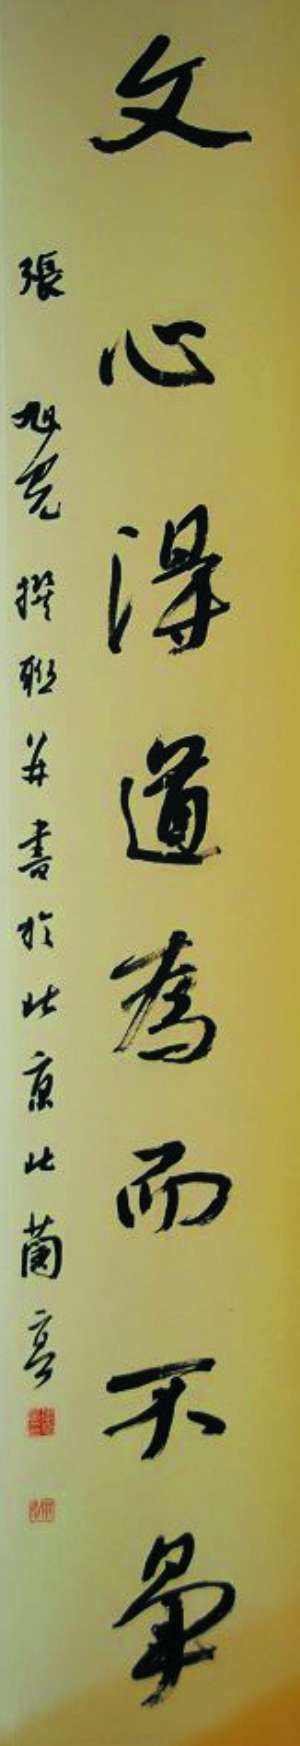 文心得道為而不爭
張旭光撰聯并書於北京北蘭亭